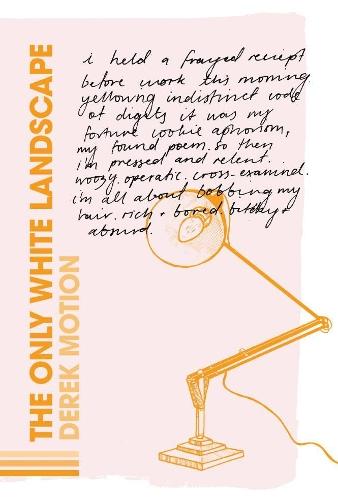 i held a frayed reciept
before work this morning
yellowing indistinct code
of digits it was my
fortune cookie aphorism,
my found poem. so then
i'm pressed and relent.
woozy. operatic. cross-examined.
i'm all about bobbing my
hair. rich + bored. bitchy +
absurd.
THE ONLY WHITE LANDSCAPE
DEREK MOTION